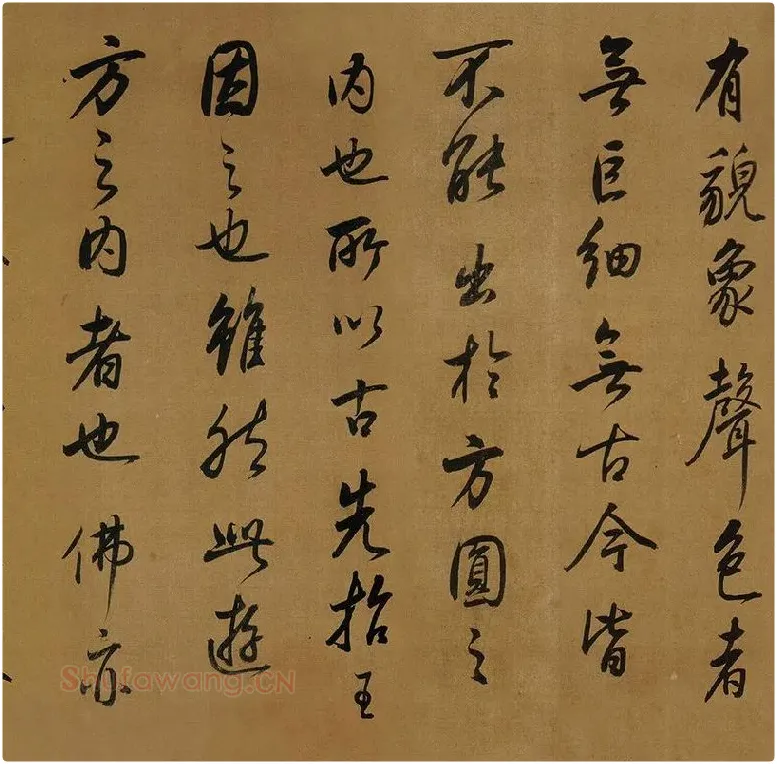 有貌象聲色者
無巨細無古今皆
不能出於方圓之
内也所以古先哲王
因之也雖然此遊
方之内者也佛亦
Shufawang.CN